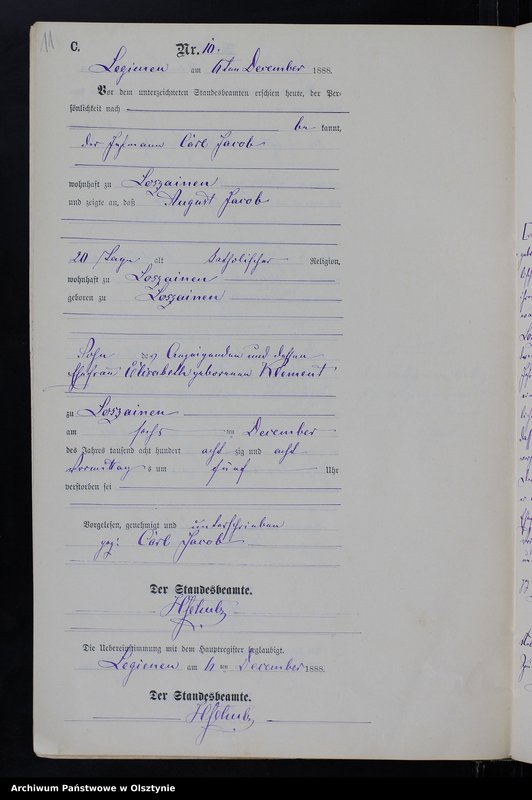 11
C.
Nr. 10.
Legienen am 6ten December 1888.
Vor dem unterzeichneten Standesbeamten erschien heute, der Per-
sönlichkeit nach
be kannt,
der Carl Jacob
wohnhaft zu Loszainen
und zeigte an, daß August Jacob
20 Tage alt katholischer Religion,
wohnhaft zu Loszainen
geboren zu Loszainen
Sohn des Anzeigenden und dessen
Ehefrau Elisabeth geborenen Klement
zu Loszainen
am sechs ten December
des Jahres tausend acht hundert acht zig und acht
Vormittag s um fünf Uhr
verstorben sei
Vorgelesen, genehmigt und unterschrieben
gez: Carl Jacob
Der Standesbeamte.
Die Uebereinstimmung mit dem Hauptregister beglaubigt.
Legienen am 6 ten December 1888.
Der Standesbeamte.
Archiwum Państwowe w Olsztynie